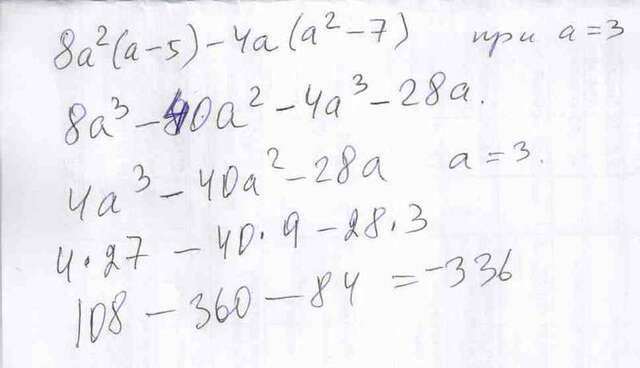 8a²(a-5)-4a(a²-7) при a=3
8a³-40a²-4a³-28a.
4a³-40a²-28a a=3.
4·27-40·9-28·3
108-360-84=-336